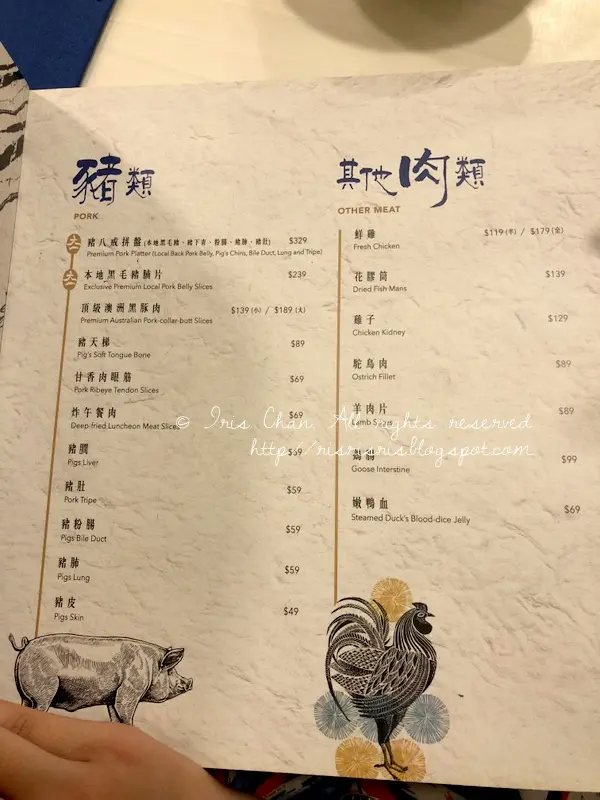 豬類
PORK
大 豬八戒拼盤 (本地黑毛豬、豬下青、粉腸、豬肺、豬肚) $329
Premium Pork Platter (Local Back Pork Belly, Pig's Chins, Bile Duct, Lung and Tripe)
大 本地黑毛豬腩片 $239
Exclusive Premium Local Pork Belly Slices
頂級澳洲黑豚肉 $139 (小) / $189 (大)
Premium Australian Pork-collar-butt Slices
豬天梯 $89
Pig's Soft Tongue Bone
甘香肉眼筋 $69
Pork Ribeye Tendon Slices
炸午餐肉 $69
Deep-fried Luncheon Meat Slices
豬膶 $69
Pigs Liver
豬肚 $59
Pork Tripe
豬粉腸 $59
Pigs Bile Duct
豬肺 $59
Pigs Lung
豬皮 $49
Pigs Skin
其他肉類
OTHER MEAT
鮮雞 $119 (半) / $179 (全)
Fresh Chicken
花膠筒 $139
Dried Fish Maws
雞子 $129
Chicken Kidney
鴕鳥肉 $89
Ostrich Fillet
羊肉片 $89
Lamb Slices
鵝腸 $99
Goose Interstine
嫩鴨血 $69
Steamed Duck's Blood-dice Jelly
© Iris Chan. All rights reserved
http://risrisris.blogspot.com